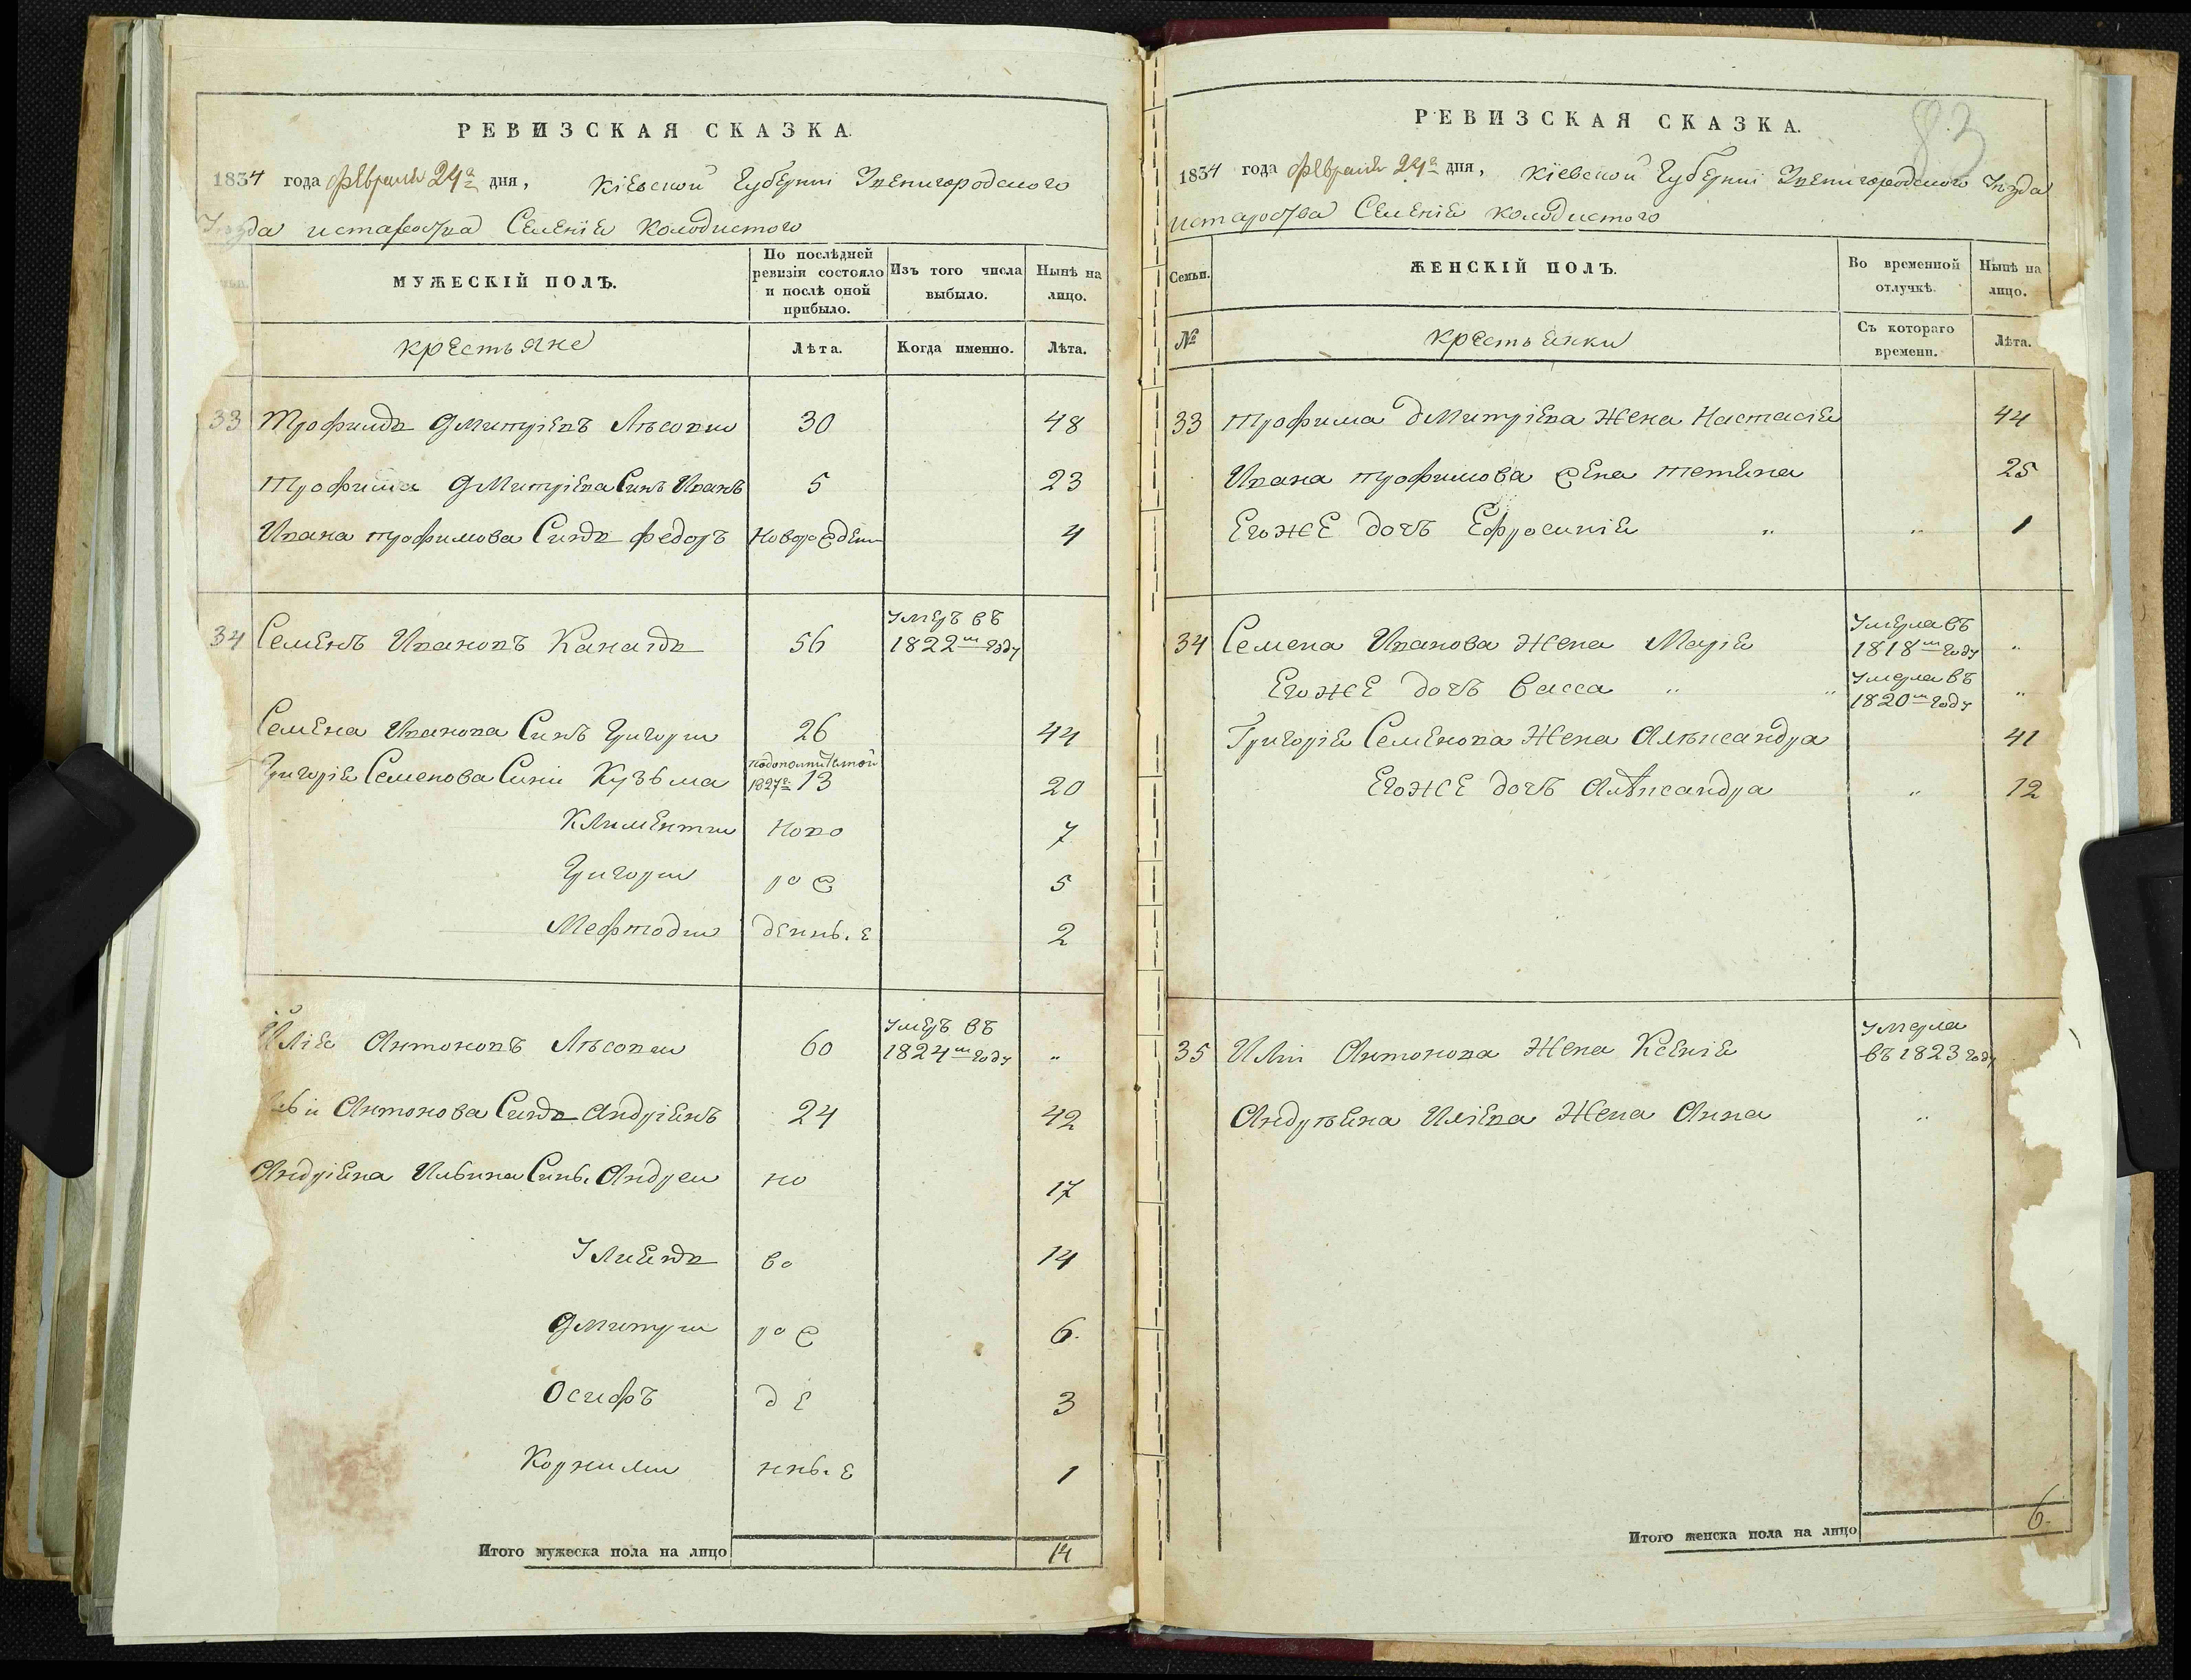 РЕВИЗСКАЯ СКАЗКА.
1834 года февраля 24го дня, Кіевской Губерніи Звенигородского
Уезда и староства Селенія Колодистого
МУЖЕСКІЙ ПОЛЪ.
По послѣдней ревизіи состояло и послѣ оной прибыло.
Изъ того числа выбыло.
Нынѣ на лицо.
крестьяне
Лѣта.
Когда именно.
Лѣта.
33 Трофимъ Дмитріевъ Лѣсовии 30 48
Трофима Дмитріева Синъ Иванъ 5 23
Ивана Трофимова Синъ Федоръ Новорожден 4
34 Семенъ Ивановъ Каналъ 56 Умеръ въ 1822м году
Семена Иванова Синъ Григории 26 44
Григорія Семенова Сини Кузьма 1827го 13 20
Климентии ново 7
Григории рож 5
Мефтодии денные 2
Илія Антоновъ Лѣсовии 60 Умеръ въ 1824м году "
Антонова Синъ Андріянъ 24 42
Андріяна Ильина Сины Андреи но 17
Улиянъ во 14
Дмитрии рож 6.
Осифъ де 3
Корнилии нные 1
Итого мужеска пола на лицо 14
83
РЕВИЗСКАЯ СКАЗКА.
1834 года февраля 24го дня, Кіевской Губерніи Звенигородского Уезда
и староства Селенія Колодистого
Семьи.
ЖЕНСКІЙ ПОЛЪ.
Во временной отлучкѣ.
Нынѣ на лицо.
№
крестьянки
Съ котораго времени.
Лѣта.
33 Трофима Дмитріева Жена Настасія 44
Ивана Трофимова Жена Тетяна 25
Егоже дочь Ефросинія " " 1
34 Семена Иванова Жена Марія Умерла въ 1818м году "
Егоже дочь Васса " " Умерла въ 1820м году "
Григорія Семенова Жена Алѣксандра 41
Егоже дочь Алѣксандра " 12
35 Иліи Антонова Жена Ксенія Умерла въ 1823 году
Андрѣяна Иліева Жена Анна "
Итого женска пола на лицо 6.